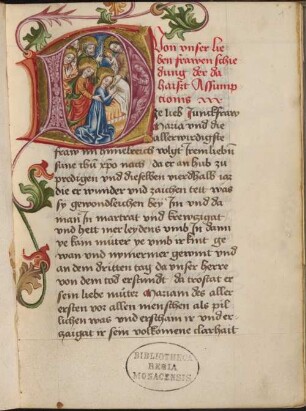 Von vnser lie
ben frawen schie
dung der da
haist Assump
tionis xxx
Die lieb Junckfraw
Maria vnd die
allerwirdigste
fraw im himelreich volgt irem liebn
sune ihu xpo nach da er an hub zu
predigen vnd dieselben vierdhalb iar
die er wunder vnd zaichen tett was
sy gewondleichen bey Im vnd da
man In martrat vnd krewzigat
vnd hett mer leydens vmb In dann
ye kain muter ye vmb ir kint ge
wan vnd nymermer gewint vnd
an dem dritten tag da vnser herre
von dem tod erstundt da trostat er
sein liebe muter Mariam des aller
ersten vor allen menschen als pil
lichen was vnd erscham ir vnd er
zaigat ir sein volkomene clarhait
BIBLIOTHECA
REGIA
MONACENSIS.